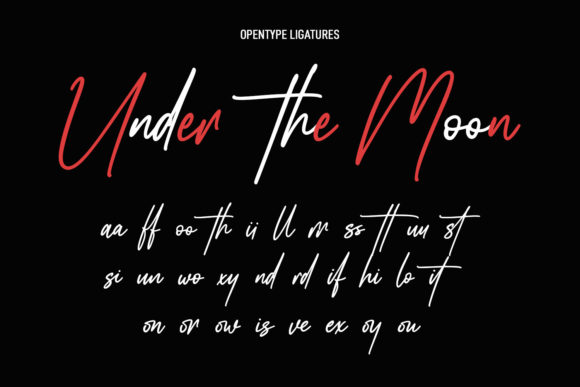 OPENTYPE LIGATURES
Under the Moon
aa ff oo th ii ll rr ss tt uu st
si un wo xy nd rd if hi lo it
on or ow is ve ex oy ou